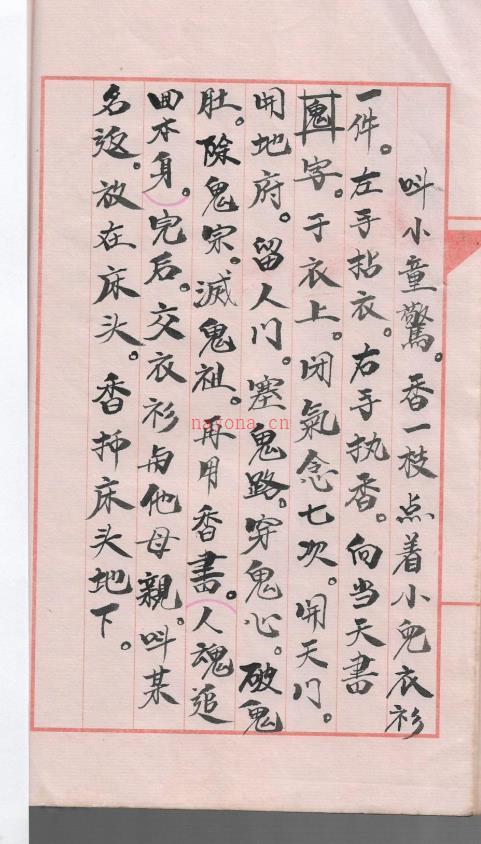 叫小童驚。香一枝点着小兒衣衫
一件。左手拈衣。右手执香。向当天書
鬼字。于衣上。闭氣念七次。開天门。
開地府。留人门。塞鬼路。穿鬼心。破鬼
肚。除鬼宗。滅鬼祖。再用香書。人魂追
回本身。完后。交衣衫与他母親。叫某
名返。放在床头。香插床头地下。
nayona.cn